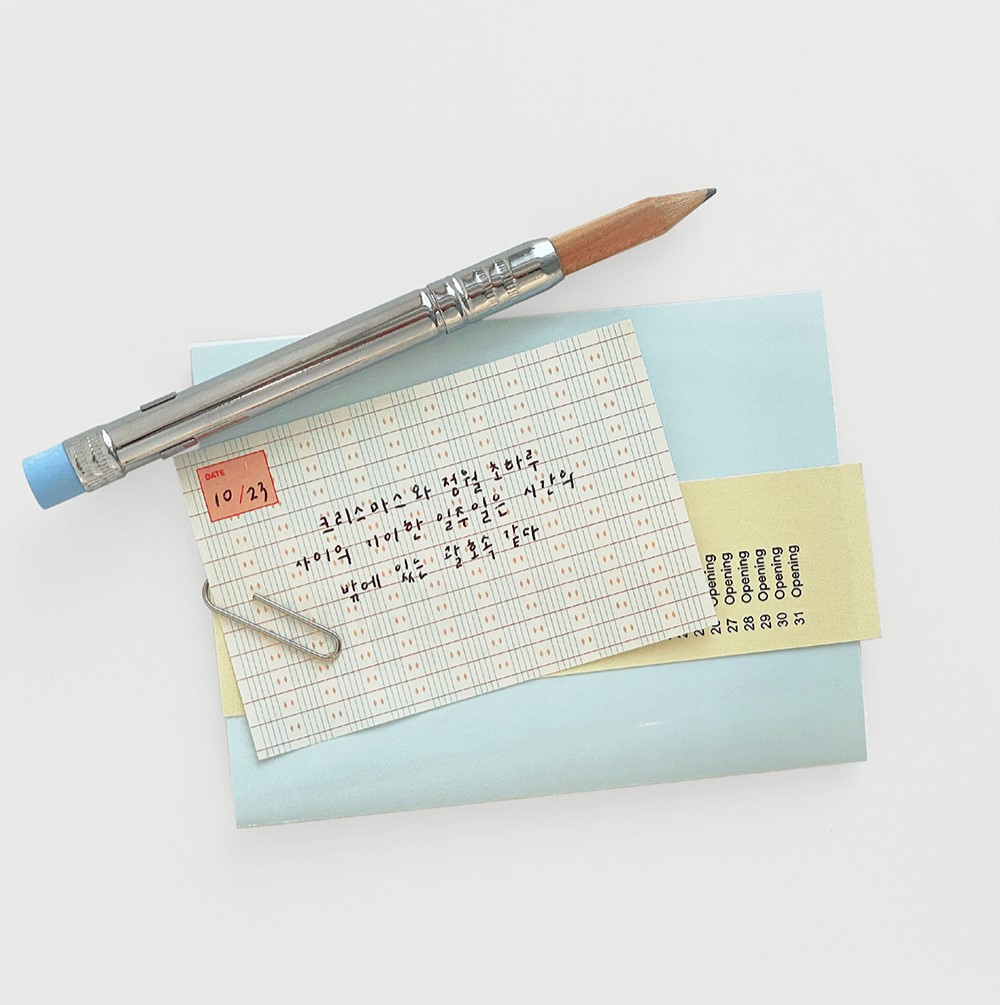 DATE
10/23
크리스마스와 정월 초하루
사이의 기이한 일주일은 시간의
밖에 있는 괄호속 같다
Opening
27 Opening
28 Opening
29 Opening
30 Opening
31 Opening